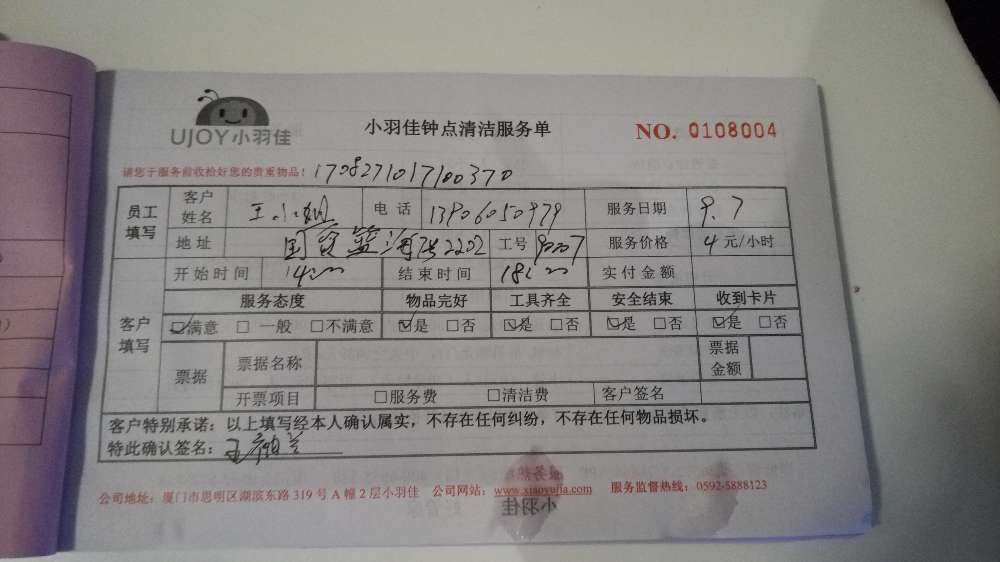 UJOY小羽佳
小羽佳钟点清洁服务单
NO. 0108004
请您于服务前收拾好您的贵重物品！ 1708271017100370
员工填写 客户姓名 王小姐 电话 13806050979 服务日期 9.7
地址 国贸蓝海 2202 工号 服务价格 4 元/小时
客户填写 开始时间 14:00 结束时间 18:00 实付金额
服务态度 物品完好 工具齐全 安全结束 收到卡片
☑满意 □一般 □不满意 ☑是 □否 ☑是 □否 ☑是 □否 ☑是 □否
票据 票据名称 票据金额
开票项目 □服务费 □清洁费 客户签名
客户特别承诺：以上填写经本人确认属实，不存在任何纠纷，不存在任何物品损坏。
特此确认签名：
公司地址：厦门市思明区湖滨东路 319 号 A 幢 2 层小羽佳 公司网站：www.xiaoyujia.com 服务监督热线：0592-5888123